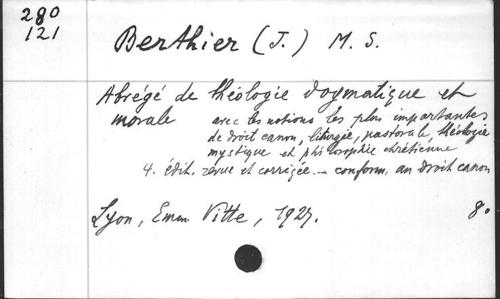 280
121
Berthier (J.) M. S.
Abrégé de théologie dogmatique et
morale avec les notions les plus importantes
de droit canon, liturgie, pastorale, théologie
mystique et philosophie chrétienne
4. édit. revue et corrigée – conform. au droit canon
Lyon, Emm. Vitte, 1927. 8°